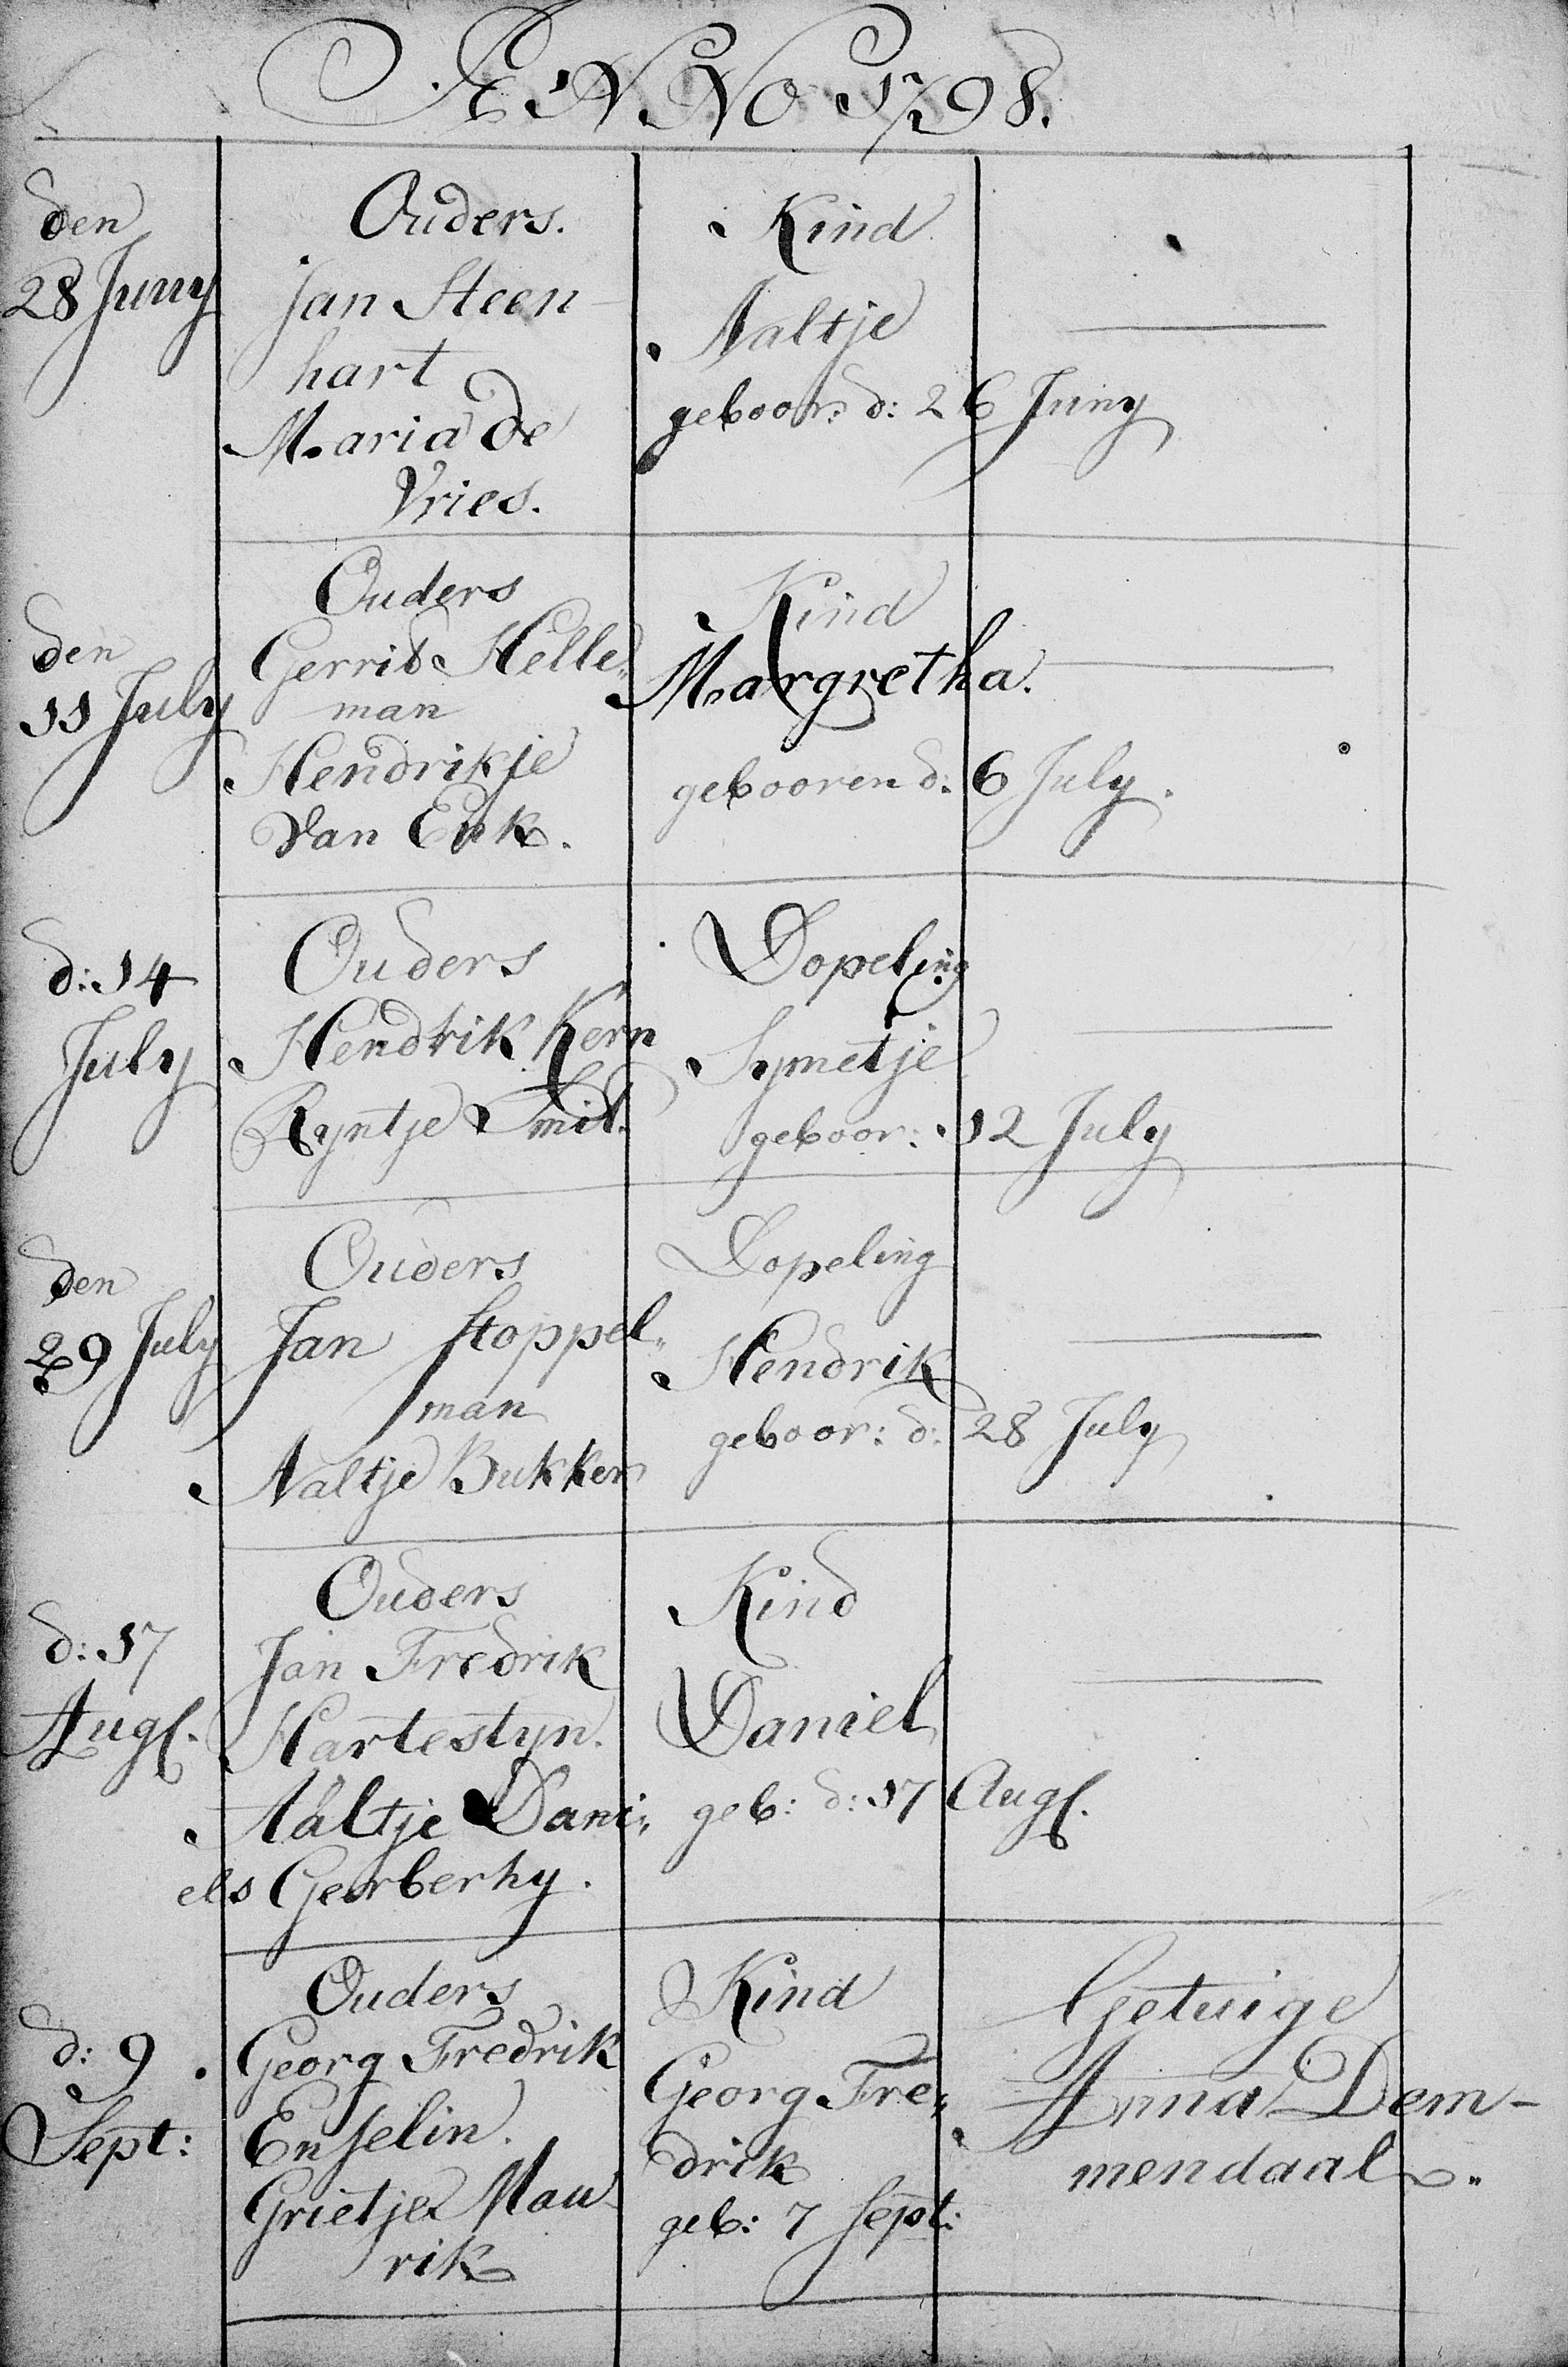 ANNO 1798.
den
28 Juny
Ouders.
Jan Steen-
hart
Maria de
Vries.
Kind
Aaltje
geboor: d: 26 Juny
den
11 July
Ouders
Gerrid Helle„
man
Hendrikje
van Eek.
Kind
Margretha.
gebooren d: 6 July.
d: 14
July
Ouders
Hendrik Kern
Ryntje Smit.
Dopeling
Symetje
geboor: 12 July
den
29 July
Ouders
Jan Stoppel„
man
Aaltje Bukker
Dopeling
Hendrik
geboor: d: 28 July
d: 17
Augs.
Ouders
Jan Fredrik
Hartestyn.
Aaltje Dani„
els Gerberhy.
Kind
Daniel
geb: d: 17 Augs.
d: 9
Sept:
Ouders
Georg Fredrik
Enselin.
Grietje Mau-
rik
Kind
Georg Fre„
drik
geb: 7 Sept:
Getuige
Anna Dem-
mendaal.